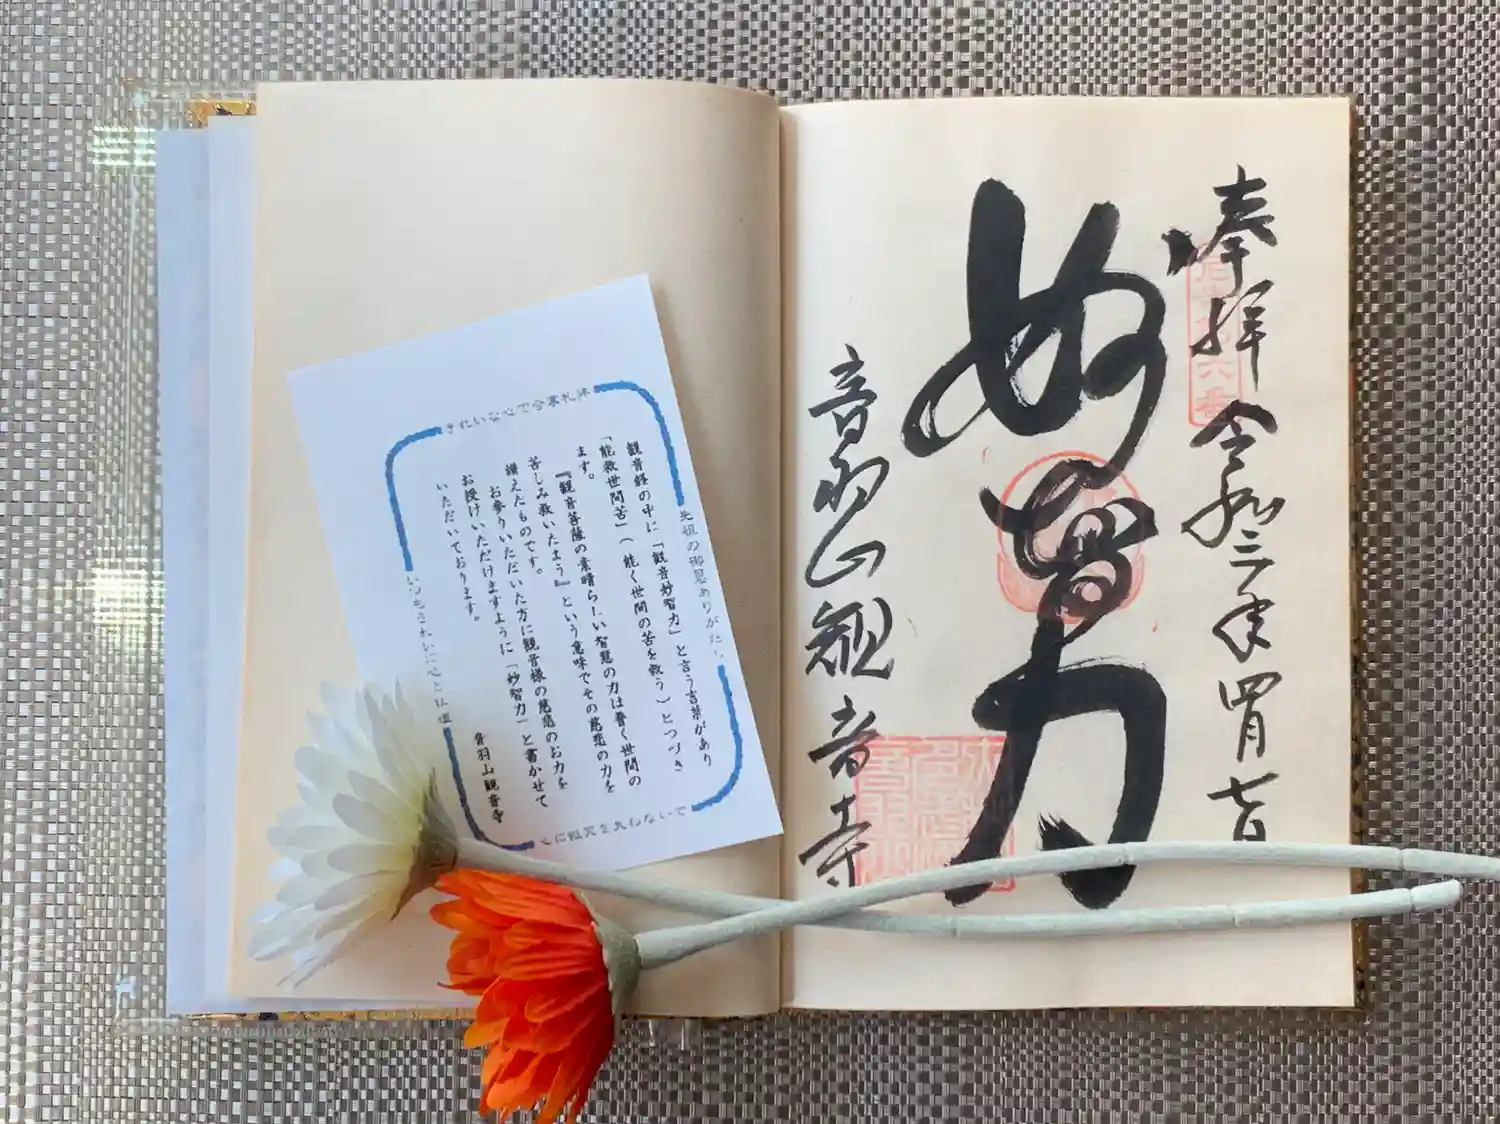 奉拝 令和三年四月七日
六番
妙智力
音羽山観音寺
きれいな心で合掌礼拝
先祖の御恩ありがたし
観音経の中に「観音妙智力」と言う言葉があり
「能救世間苦」(能く世間の苦を救う)とつづき
ます。
『観音菩薩の素晴らしい智慧の力は普く世間の
苦しみ救いたまう』という意味でその慈悲の力を
讃えたものです。
お参りいただいた方に観音様の慈悲のお力を
お授けいただけますように「妙智力」と書かせて
いただいております。
音羽山観音寺
いつもきれいに心と仏壇
心に祖先を失わないで